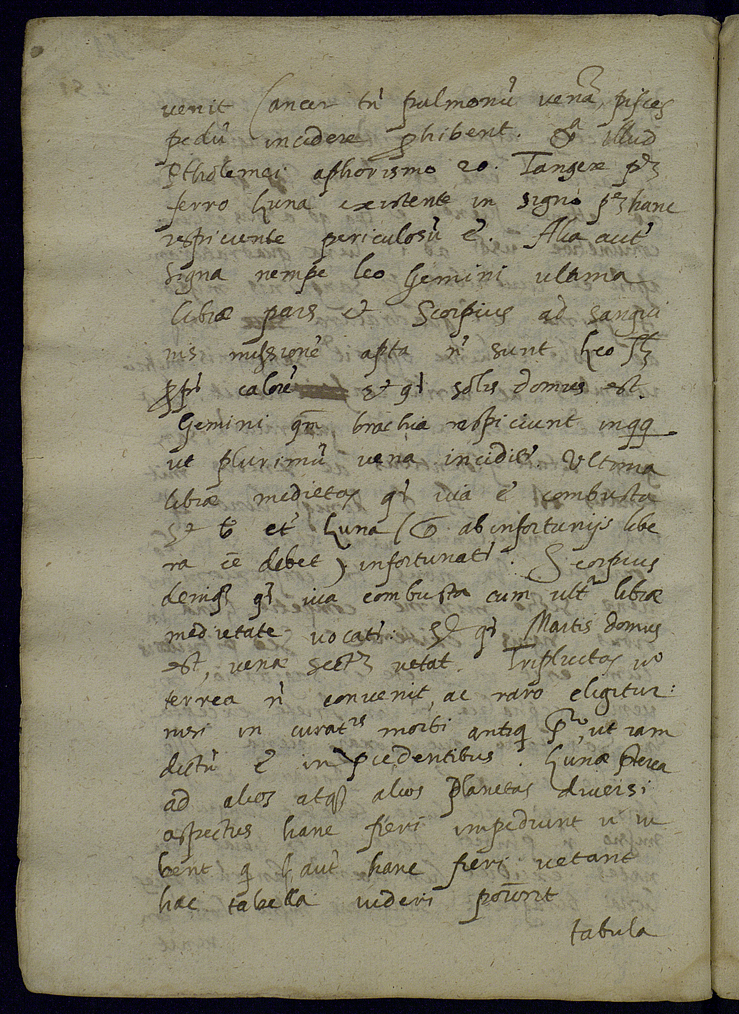 venit Cancer tñ pulmonũ venã, pisces
pedũ incidere ꝓhibent. illud
Ptholemei aphorismo 20. Tangere
ferro Luna existente in signo hanc
respiciente periculosũ ē. Alia aut̃
signa nempe leo Gemini ultima
libræ pars et Scorpius ad sangui
nis missionē apta ñ sunt Leo
calorẽ et qĩ solis domus est.
Gemini qm̃ brachia respiciunt
ut plurimũ vena incidit̃. Ultima
libræ medietas qĩ via ē combusta
et Luna ab infortunijs libe
ra eē debet) infortunat̃. Scorpius
deniqꝫ qĩ via combusta cum ult̃ libræ
medietate vocat̃. qĩ Martis domus
est, venæ vetat. Triplicitas vº
terrea ñ convenit, ac raro eligitur:
nisi in morbi ut iam
dictũ ē in p̃cedentibus. Lunæ p̃terea
ad alios atqꝫ alios planetas diversi
aspectus hanc fieri impediunt ñ iu
bent aut̃ hanc fieri vetant
hac tabella videri poterit
tabula